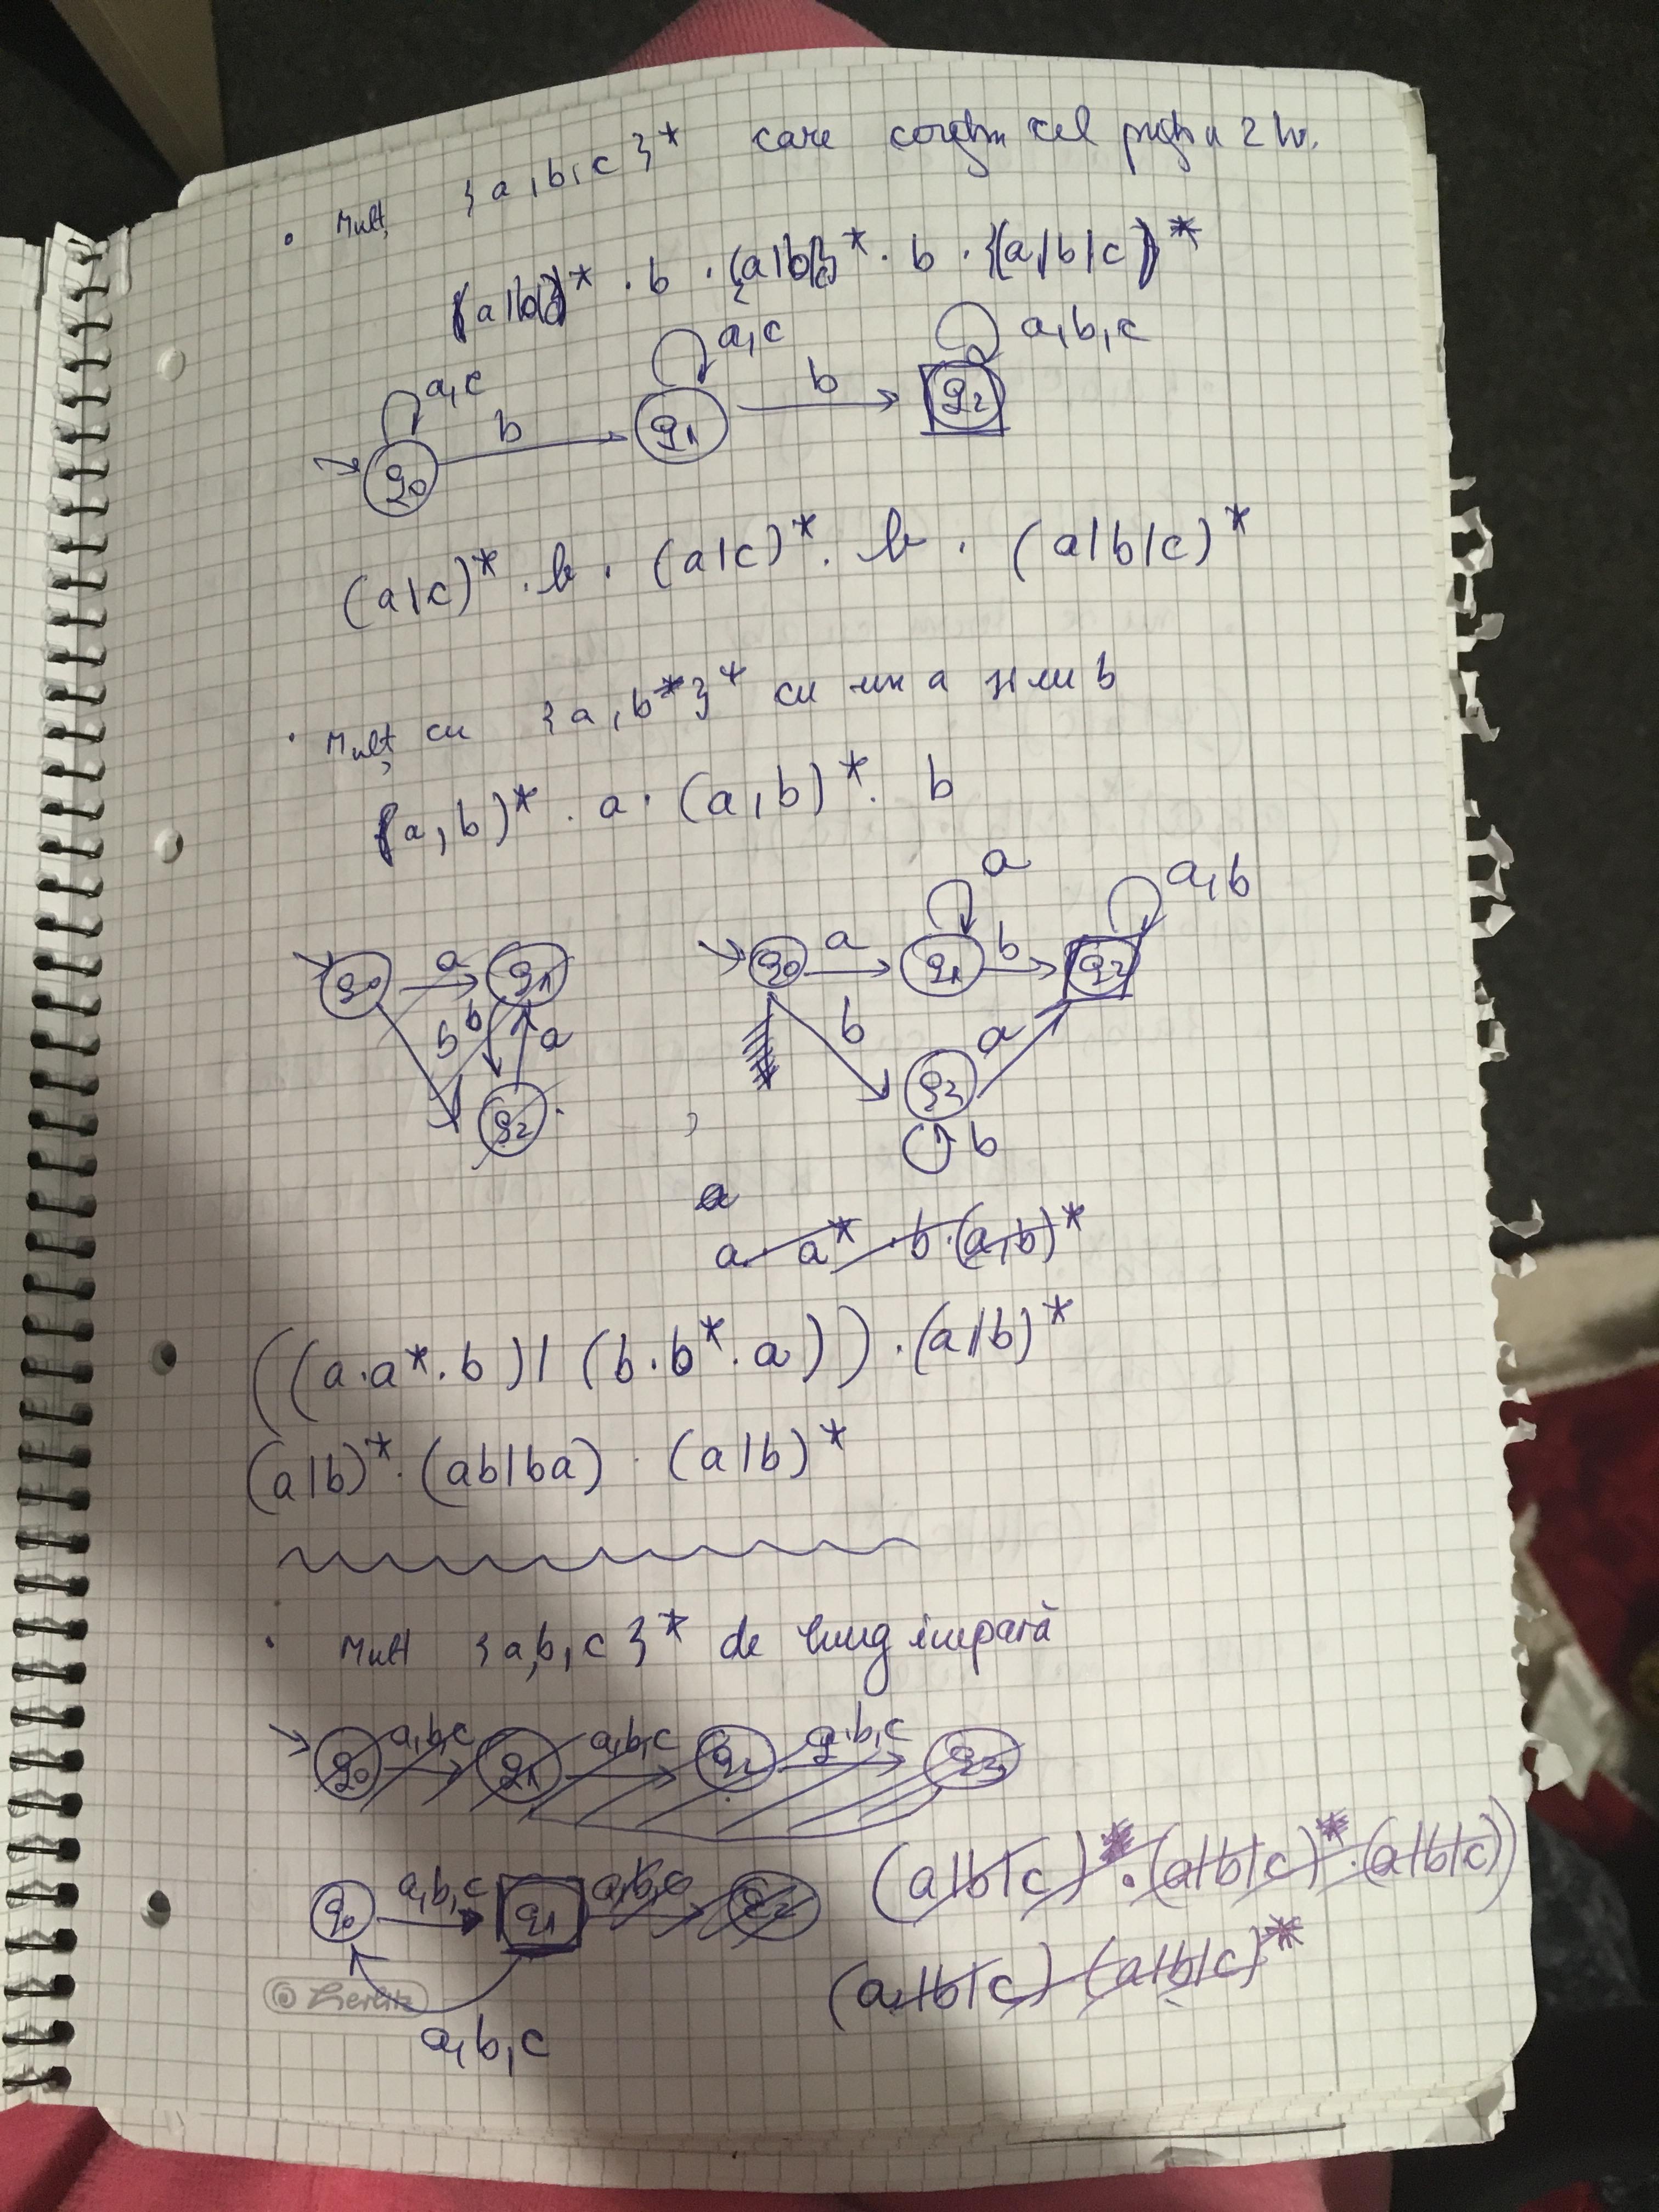 • Mulț {a,b,c}* care conțin cel puțin 2 b.
(a|b|c)* · b · (a|b|c)* · b · (a|b|c)*
a,c a,c a,b,c
b b
q0 q1 q2
(a|c)* · b · (a|c)* · b · (a|b|c)*
• Mulț cu {a,b*}* cu un a și un b
(a,b)* · a · (a,b)* · b
a a,b
q0 a q1 q0 a q1 b q2
b b a b a
q2 q3
b
a
a · a* · b · (a,b)*
((a·a*·b)|(b·b*·a))·(a|b)*
(a|b)*·(ab|ba)·(a|b)*
• Mult {a,b,c}* de lung impară
q0 a,b,c q1 a,b,c q2 a,b,c q3
(a|b|c)* · (a|b|c)* · (a|b|c)
q0 a,b,c q1 a,b,c q2
(a|b|c) (a|b|c)*
Herlitz
a,b,c